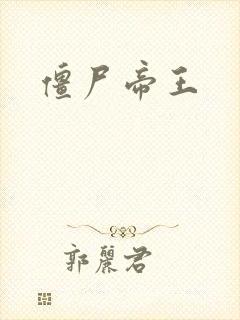 僵尸帝王
郭丽君